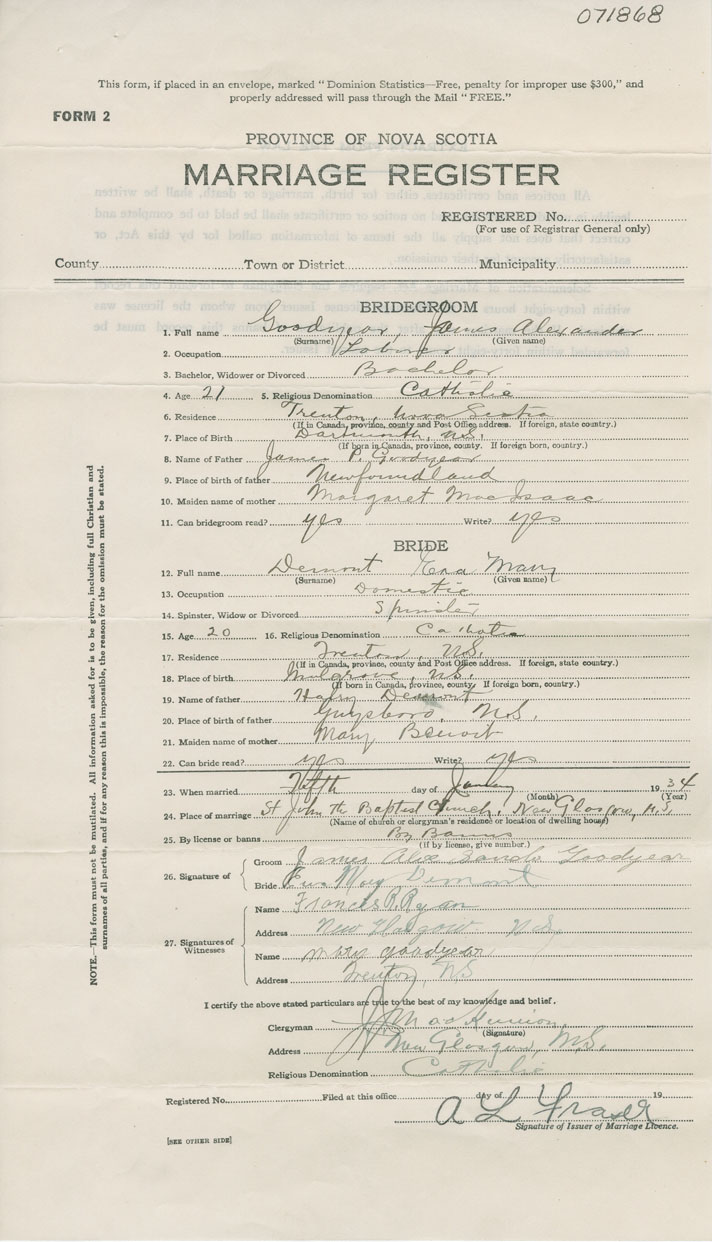 071868
This form, if placed in an envelope, marked "Dominion Statistics—Free, penalty for improper use $300," and
properly addressed will pass through the Mail "FREE."
FORM 2
PROVINCE OF NOVA SCOTIA
MARRIAGE REGISTER
REGISTERED No.
(For use of Registrar General only)
County Town or District Municipality
BRIDEGROOM
1. Full name Goodyear, James Alexander
(Surname) (Given name)
2. Occupation Laborer
3. Bachelor, Widower or Divorced Bachelor
4. Age 21 5. Religious Denomination Catholic
6. Residence Trenton, Nova Scotia
(If in Canada, province, county and Post Office address. If foreign, state country.)
7. Place of Birth Dartmouth, N.S.
(If born in Canada, province, county. If foreign born, country.)
8. Name of Father James P. Goodyear
9. Place of birth of father Newfoundland
10. Maiden name of mother Margaret MacIsaac
11. Can bridegroom read? yes Write? yes
BRIDE
12. Full name Demont Mary
(Surname) (Given name)
13. Occupation Domestic
14. Spinster, Widow or Divorced Spinster
15. Age 20 16. Religious Denomination Catholic
17. Residence Trenton, N.S.
(If in Canada, province, county and Post Office address. If foreign, state country.)
18. Place of birth Mulgrave, N.S.
(If born in Canada, province, county. If foreign born, country.)
19. Name of father Demont
20. Place of birth of father Guysboro, N.S.
21. Maiden name of mother Mary Benoit
22. Can bride read? yes Write? yes
23. When married day of 1934
(Month) (Year)
24. Place of marriage St John the Baptist Church, New Glasgow, N.S.
(Name of church or clergyman's residence or location of dwelling house)
25. By license or banns By Banns
(If by license, give number.)
26. Signature of
Groom James Goodyear
Bride Mary Demont
27. Signatures of Witnesses
Name Francis R. Ryan
Address New Glasgow N.S.
Name Mary Goodyear
Address Trenton, NS
I certify the above stated particulars are true to the best of my knowledge and belief.
Clergyman
(Signature)
Address New Glasgow, N.S.
Religious Denomination Catholic
Registered No. Filed at this office day of 19
A L Fraser
Signature of Issuer of Marriage Licence.
[SEE OTHER SIDE]
NOTE.—This form must not be mutilated. All information asked for is to be given, including full Christian and
surnames of all parties, and if for any reason this is impossible, the reason for the omission must be stated.